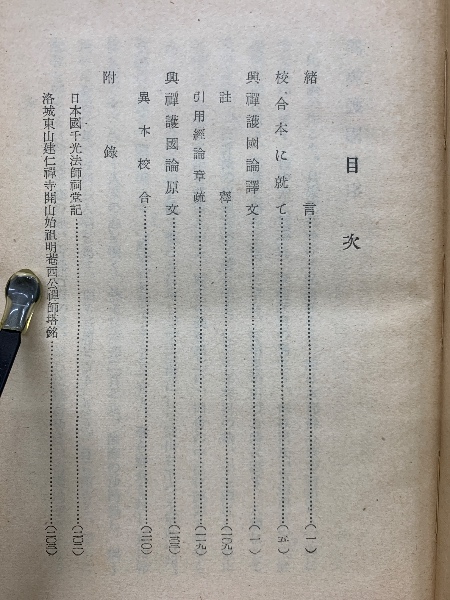 目次
緒言……(一)
校合本に就て……(五)
興禪護國論譯文……(一)
註釋
引用經論章疏
興禪護國論原文
異本校合
附錄
日本國千光法師祠堂記
洛城東山建仁禪寺開山始祖明菴西公禪師塔銘